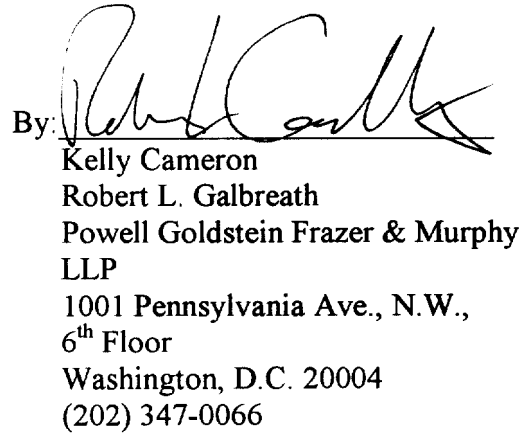 By:
Kelly Cameron
Robert L. Galbreath
Powell Goldstein Frazer & Murphy
LLP
1001 Pennsylvania Ave., N.W.,
6th Floor
Washington, D.C. 20004
(202) 347-0066